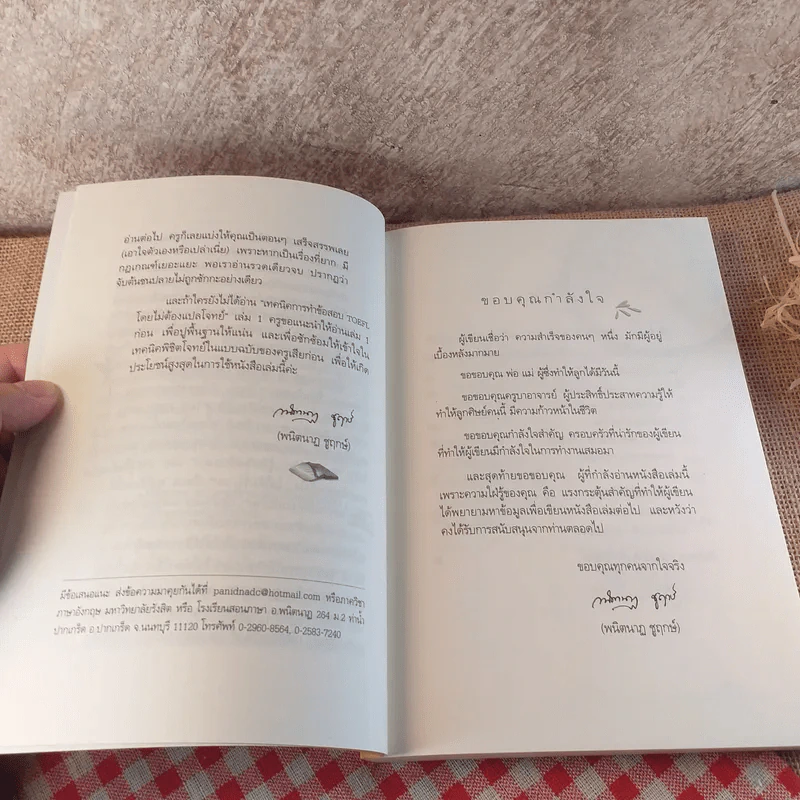 อ่านต่อไป ครูก็เลยแบ่งให้คุณเป็นตอนๆ เสร็จสรรพเลย
(เอาใจตัวเองหรือเปล่าเนี่ย) เพราะหากเป็นเรื่องที่ยาก มี
กฎเกณฑ์เยอะแยะ พอเราอ่านรวดเดียวจบ ปรากฏว่า
จับต้นชนปลายไม่ถูกซักกะอย่างเดียว
และถ้าใครยังไม่ได้อ่าน "เทคนิคการทำข้อสอบ TOEFL
โดยไม่ต้องแปลโจทย์" เล่ม 1 ครูขอแนะนำให้อ่านเล่ม 1
ก่อน เพื่อปูพื้นฐานให้แน่น และเพื่อซักซ้อมให้เข้าใจใน
เทคนิคพิชิตโจทย์ในแบบฉบับของครูเสียก่อน เพื่อให้เกิด
ประโยชน์สูงสุดในการใช้หนังสือเล่มนี้ค่ะ
พนิตนาฏ ชูฤกษ์
(พนิตนาฏ ชูฤกษ์)
มีข้อเสนอแนะ ส่งข้อความมาคุยกันได้ที่ panidnadc@hotmail.com หรือภาควิชา
ภาษาอังกฤษ มหาวิทยาลัยรังสิต หรือ โรงเรียนสอนภาษา อ.พนิตนาฏ 264 ม.2 ท่าน้ำ
ปากเกร็ด อ.ปากเกร็ด จ.นนทบุรี 11120 โทรศัพท์ 0-2960-8564, 0-2583-7240
ขอบคุณกำลังใจ
ผู้เขียนเชื่อว่า ความสำเร็จของคนๆ หนึ่ง มักมีผู้อยู่
เบื้องหลังมากมาย
ขอขอบคุณ พ่อ แม่ ผู้ซึ่งทำให้ลูกได้มีวันนี้
ขอขอบคุณครูบาอาจารย์ ผู้ประสิทธิ์ประสาทความรู้ให้
ทำให้ลูกศิษย์คนนี้ มีความก้าวหน้าในชีวิต
ขอขอบคุณกำลังใจสำคัญ ครอบครัวที่น่ารักของผู้เขียน
ที่ทำให้ผู้เขียนมีกำลังใจในการทำงานเสมอมา
และสุดท้ายขอขอบคุณ ผู้ที่กำลังอ่านหนังสือเล่มนี้
เพราะความใฝ่รู้ของคุณ คือ แรงกระตุ้นสำคัญที่ทำให้ผู้เขียน
ได้พยายามหาข้อมูลเพื่อเขียนหนังสือเล่มต่อไป และหวังว่า
คงได้รับการสนับสนุนจากท่านตลอดไป
ขอบคุณทุกคนจากใจจริง
พนิตนาฏ ชูฤกษ์
(พนิตนาฏ ชูฤกษ์)